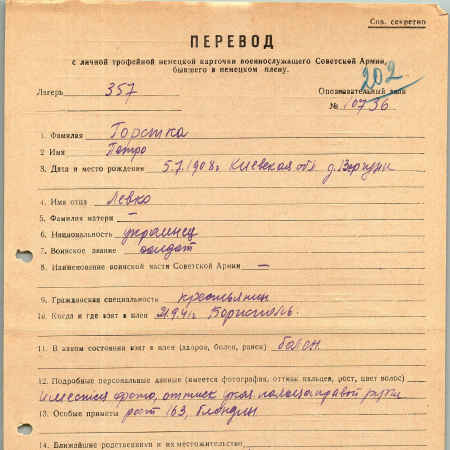 Сов. секретно
ПЕРЕВОД
с личной трофейной немецкой карточки военнослужащего Советской Армии,
бывшего в немецком плену.
202
Лагерь 357 Опознавательный знак
№ 10736
1. Фамилия Горстка
2 Имя Петро
3. Дата и место рождения 5.7.1908г Киевская обл. д. Вергуны
4. Имя отца Левко
5. Фамилия матери —
6. Национальность украинец
7. Воинское звание солдат
8. Наименование воинской части Советской Армии —
9. Гражданская специальность крестьянин
10. Когда и где взят в плен 21.9.41г Борисполь.
11. В каком состоянии взят в плен (здоров, болен, ранен) болен
12. Подробные персональные данные (имеется фотография, оттиск пальцев, рост, цвет волос)
имеется фото, оттиск указ. пальца правой руки
13. Особые приметы рост 163, блондин
14. Ближайшие родственники и их местожительство